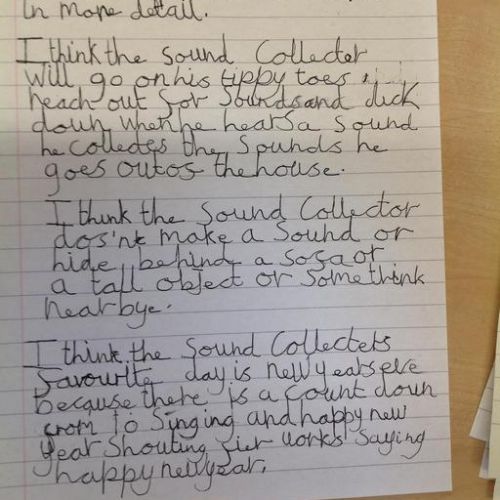 in more detail.
I think the sound Collecter
will go on his tippy toes
reach out for sounds and duck
doun when he hears a sound
he colledes the sounds he
goes outos the house.
I think the sound Collector
dos'nt make a sound or
hide behind a sosa or
a tall object or somethink
nearbye.
I think the sound Collecters
favourite day is newyears eve
because there is a count doun
from 10 singing and happy new
year shouting fier works saying
happy newyear.